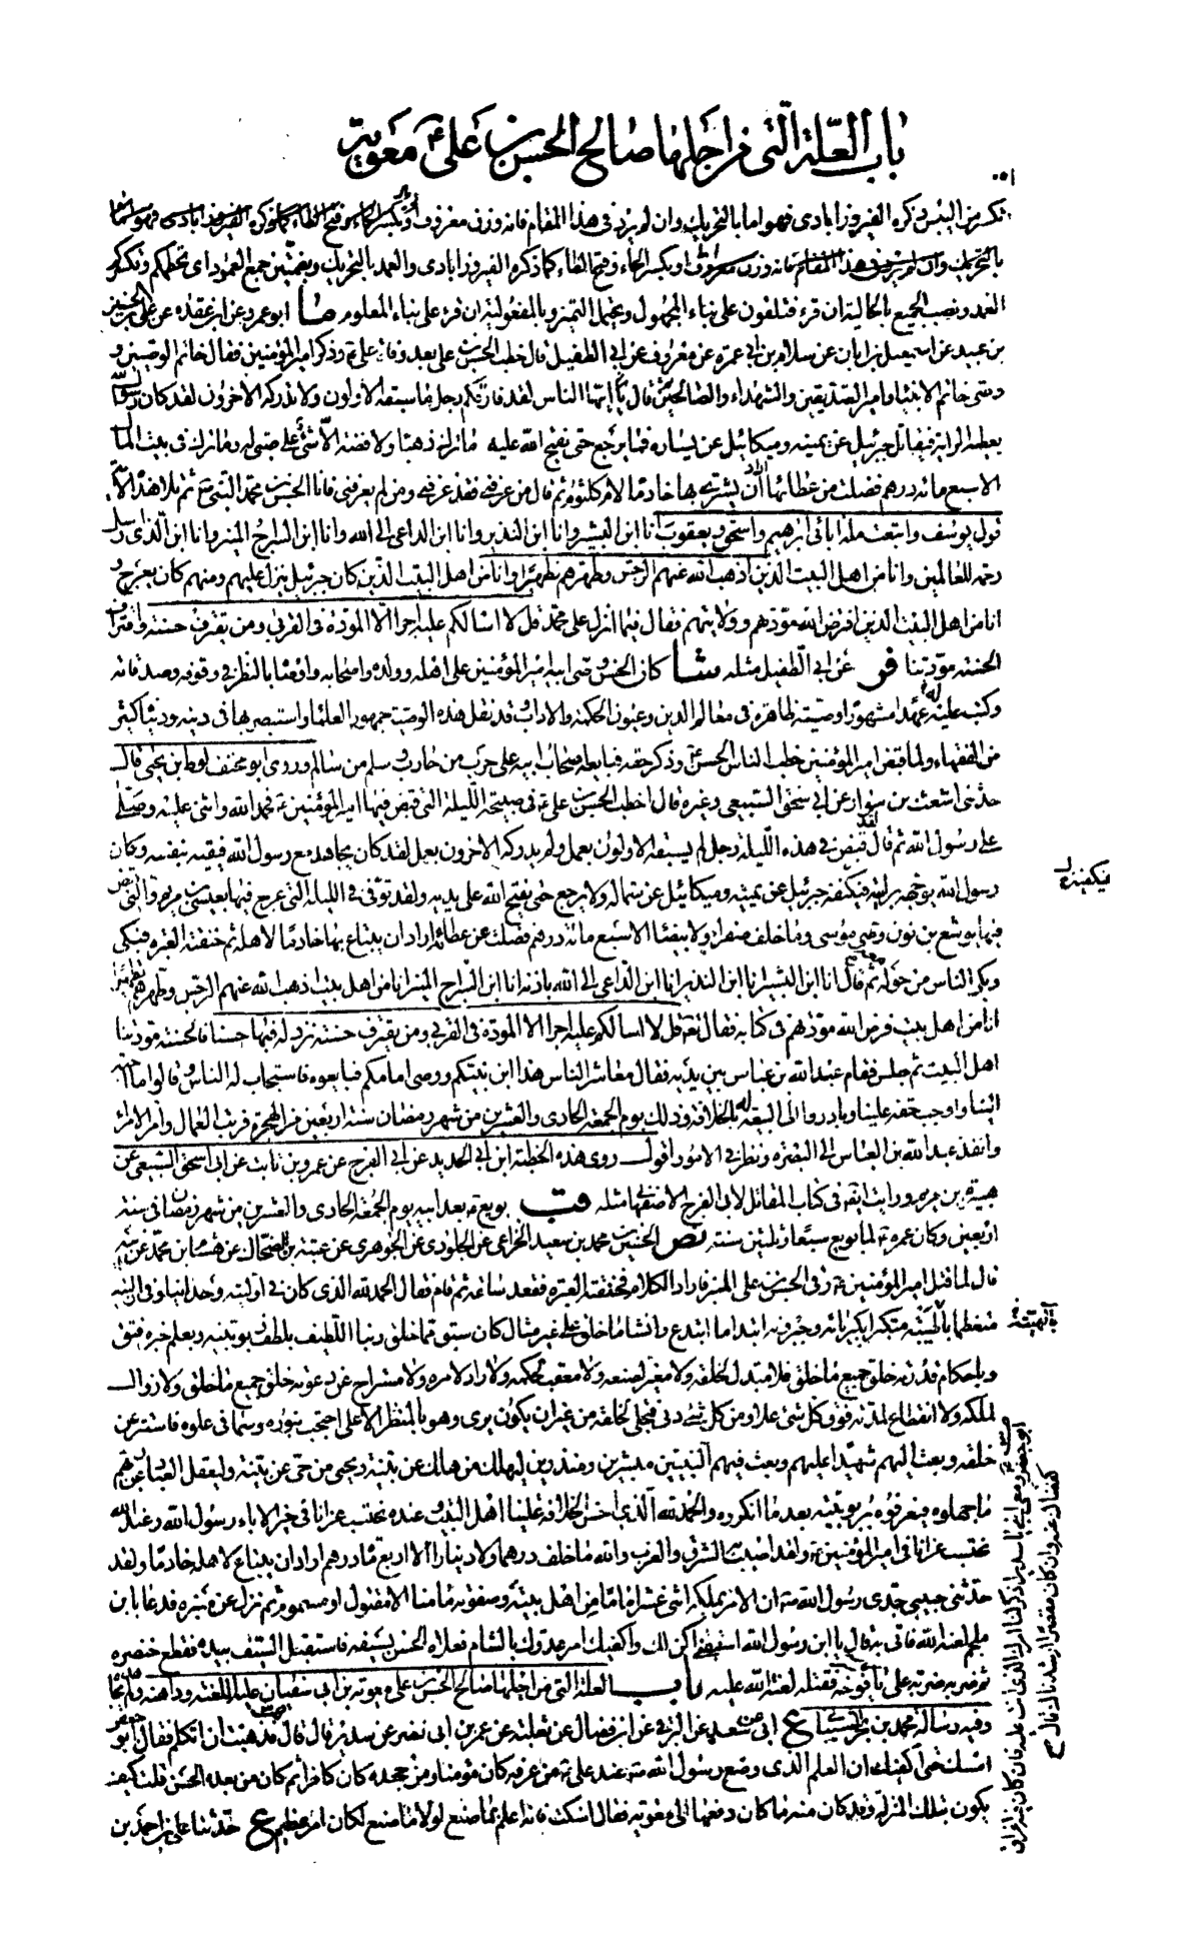 باب العلة التي من اجلها صالح الحسن بن علي ع معوية
١٥١
تكبر من البيس ذكره الفيروزابادى فهو اما بالتحريك وان لم يرد في هذا المقام فانه وزن معروف او بكسر الحاء وفتح الظاء كما ذكره الفيروزابادى فهو
بالتحريك وان لم يرد في هذا المقام فانه وزن معروف او بكسر الحاء وفتح الظاء كما ذكره الفيروزابادى والعمد بالتحريك وبضمتين جمع العمود اى تحطمكم وتكسركم
العمد ونصب الجميع بالحالية ان قرء فتلفون على بناء المجهول ويحتمل التميز وبالمفعولية ان قرء على بناء المعلوم ما ابو عمرو عن ابن عقده عن
بن عبيد عن اسمعيل بن ابان عن سلام بن ابي عمرة عن معروف عن ابي الطفيل قال خطب الحسن بن على بعد وفاة على ع وذكر امير المؤمنين فقال خاتم الوصيين و
وصى خاتم الانبياء وامير الصديقين والشهداء والصالحين ثم قال يا ايها الناس لقد فارقكم رجل ما سبقه الاولون ولا يدركه الاخرون لقد كان رسول الله
يعطيه الراية فيقاتل جبرئيل عن يمينه وميكائيل عن يساره فما يرجع حتى يفتح الله عليه ما ترك ذهبا ولا فضة الا شئ على صبى له وما ترك في بيت المال
الا سبع مائة درهم فضلت من عطائه اراد ان يشترى بها خادما لام كلثوم ثم قال من عرفني فقد عرفني ومن لم يعرفني فانا الحسن بن محمد النبي ص ثم تلا هذه الاية
قول يوسف واتبعت ملة ابائي ابرهيم واسحق ويعقوب انا ابن البشير وانا ابن النذير وانا ابن الداعي الى الله وانا ابن السراج المنير وانا ابن الذى ارسل
رحمة للعالمين وانا من اهل البيت الذين اذهب الله عنهم الرجس وطهرهم تطهيرا وانا من اهل البيت الذين كان جبرئيل ينزل عليهم ومنهم كان يعرج و
انا من اهل البيت الذين افترض الله مودتهم وولايتهم فقال فيما انزل على محمد قل لا اسالكم عليه اجرا الا المودة في القربى ومن يقترف حسنة واقتراف
الحسنة مودتنا فر عن ابي الطفيل مثله شا كان الحسن وصى ابيه امير المؤمنين على اهله وولده واصحابه واوصاه بالنظر في وقوفه وصدقاته
وكتب عليه له عهدا مشهورا ووصيته ظاهرة في معالم الدين وعيون الحكمة والاداب وقد نقل هذه الوصية جمهور العلما واستبصر بها في دينه ودنياه كثير
من الفقهاء ولما قبض امير المؤمنين خطب الناس الحسن ع وذكر حقه فبايعه اصحاب ابيه على حرب من حارب وسلم من سالم وروى ابو مخنف لوط بن يحيى قال
حدثني اشعث بن سوار عن ابي اسحق السبيعي وغيره قال خطب الحسن بن على ع في صبيحة الليلة التي قبض فيها امير المؤمنين ع فحمد الله واثنى عليه وصلى
على رسول الله ثم قال لقد قبض في هذه الليلة رجل لم يسبقه الاولون بعمل ولم يدركه الاخرون بعمل لقد كان يجاهد مع رسول الله فيقيه بنفسه وكان
رسول الله يوجهه برايته فيكنفه جبرئيل عن يمينه وميكائيل عن شماله ولا يرجع حتى يفتح الله على يديه ولقد توفي في الليلة التي عرج فيها بعيسى بن مريم والتي قبض
فيها يوشع بن نون وصى موسى وما خلف صفراء ولا بيضاء الا سبع مائة درهم فضلت عن عطائه اراد ان يبتاع بها خادما لاهله ثم خنقته العبرة فبكى
وبكى الناس من حوله معه ثم قال انا ابن البشير انا ابن النذير انا ابن الداعي الى الله باذنه انا ابن السراج المنير انا من اهل بيت اذهب الله عنهم الرجس وطهرهم تطهيرا
انا من اهل بيت فرض الله مودتهم في كتابه فقال تع قل لا اسالكم عليه اجرا الا المودة في القربى ومن يقترف حسنة نزد له فيها حسنا فالحسنة مودتنا
اهل البيت ثم جلس فقام عبد الله بن عباس بين يديه فقال معاشر الناس هذا ابن نبيكم ووصى امامكم فبايعوه فاستجاب له الناس وقالوا ما احبه
الينا واوجب حقه علينا وبادروا الى البيعة له بالخلافة وذلك يوم الجمعة الحادى والعشرين من شهر رمضان سنة اربعين من الهجرة فرتب العمال وامر الامراء
وانفذ عبد الله بن العباس الى البصرة ونظر في الامور اقول روى هذه الخطبة ابن ابي الحديد عن ابي الفرج عن عمرو بن ثابت عن ابي اسحق السبيعي عن
هبيرة بن مريم ورايت ايضا في كتاب المقاتل لابي الفرج الاصفهاني مثله قب بويع ع بعد ابيه يوم الجمعة الحادى والعشرين من شهر رمضان في سنة
اربعين وكان عمره ع لما بويع سبعا وثلثين سنة نص الحسين بن محمد بن سعيد الخزاعي عن الجلودى عن الجوهرى عن عتبة بن الضحاك عن هشام بن محمد عن ابيه
قال لما قتل امير المؤمنين ع رقى الحسن بن على المنبر فاراد الكلام فخنقته العبرة فقعد ساعة ثم قام فقال الحمد لله الذى كان في اوليته وحدانيا وفي ازليته
متعظما بالهيته متكبرا بكبريائه وجبروته ابتدا ما ابتدع وانشا ما خلق على غير مثال كان سبق مما خلق ربنا اللطيف بلطف ربوبيته وبعلم خبره فتق
وباحكام قدرته خلق جميع ما خلق فلا مبدل لخلقه ولا مغير لصنعه ولا معقب لحكمه ولا راد لامره ولا مستراح عن دعوته خلق جميع ما خلق ولا زوال
لملكه ولا انقطاع لمدته فوق كل شئ علا ومن كل شئ دنى فتجلى لخلقه من غير ان يكون يرى وهو بالمنظر الاعلى احتجب بنوره وسما في علوه فاستتر عن
خلقه وبعث اليهم شهيدا عليهم وبعث فيهم النبيين مبشرين ومنذرين ليهلك من هلك عن بينة ويحيى من حى عن بينة وليعقل العباد عن ربهم
ما جهلوه فيعرفوه بربوبيته بعد ما انكروه والحمد لله الذى احسن الخلافة علينا اهل البيت وعنده نحتسب عزانا في خير الاباء رسول الله وعند الله
نحتسب عزانا في امير المؤمنين ع ولقد اصيب به الشرق والغرب والله ما خلف درهما ولا دينارا الا اربع مائة درهم اراد ان يبتاع لاهله خادما ولقد
حدثني حبيبي جدى رسول الله ص ان الامر يملكه اثنى عشر اماما من اهل بيته وصفوته ما منا الا مقتول او مسموم ثم نزل عن منبره فدعا بابن
ملجم لعنه الله فاتي به قال يا ابن رسول الله استبقني اكن لك واكفيك امر عدوك بالشام فعلاه الحسن بسيفه فاستقبل السيف بيده فقطع خنصره
ثم ضربه ضربة على يافوخه فقتله لعنة الله عليه باب العلة التي من اجلها صالح الحسن بن على معوية بن ابي سفيان عليه اللعنة وداهنه ولم يجاهده
وفيه رسالة محمد بن بحر الشيباني ع ابي عن سعد عن البرقي عن ابن فضال عن ثعلبة عن عمر بن ابي نصر عن سدير قال قال
امسك حتى اكفيك ان العلم الذى وضع رسول الله ص عند على ع من عرفه كان مؤمنا ومن جحده كان كافرا ثم كان من بعده الحسن قلت كيف
يكون بتلك المنزلة وقد كان منه ما كان دفعها الى معوية فقال اسكت فانه اعلم بما صنع لولا ما صنع لكان امر عظيم ع حدثنا على بن احمد بن
فيكنفه ل
بالهيته
ابو جعفر ع ومعي ابني يا سدير اذكر لنا امرك الذى انت عليه فان كان فيه اغراق
كففناك عنه وان كان مقصرا ارشدناك قال